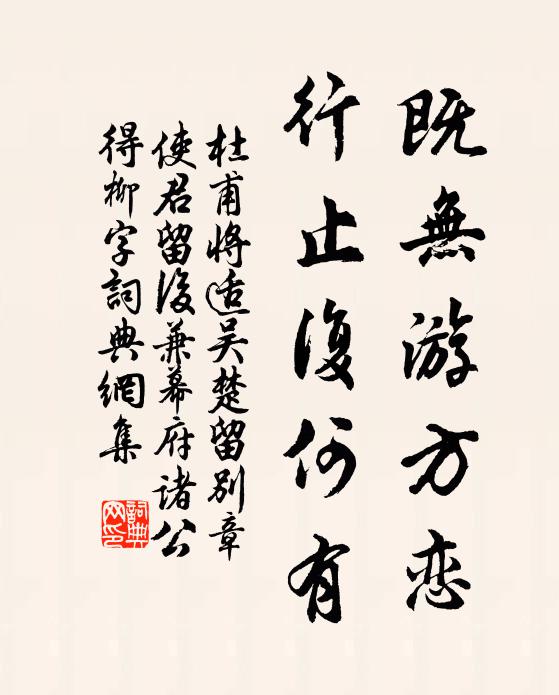 既無游方恋
行止復何有
杜甫將适吴楚留别章
使君留後兼幕府諸公
得柳字詞典網集
詞典网印